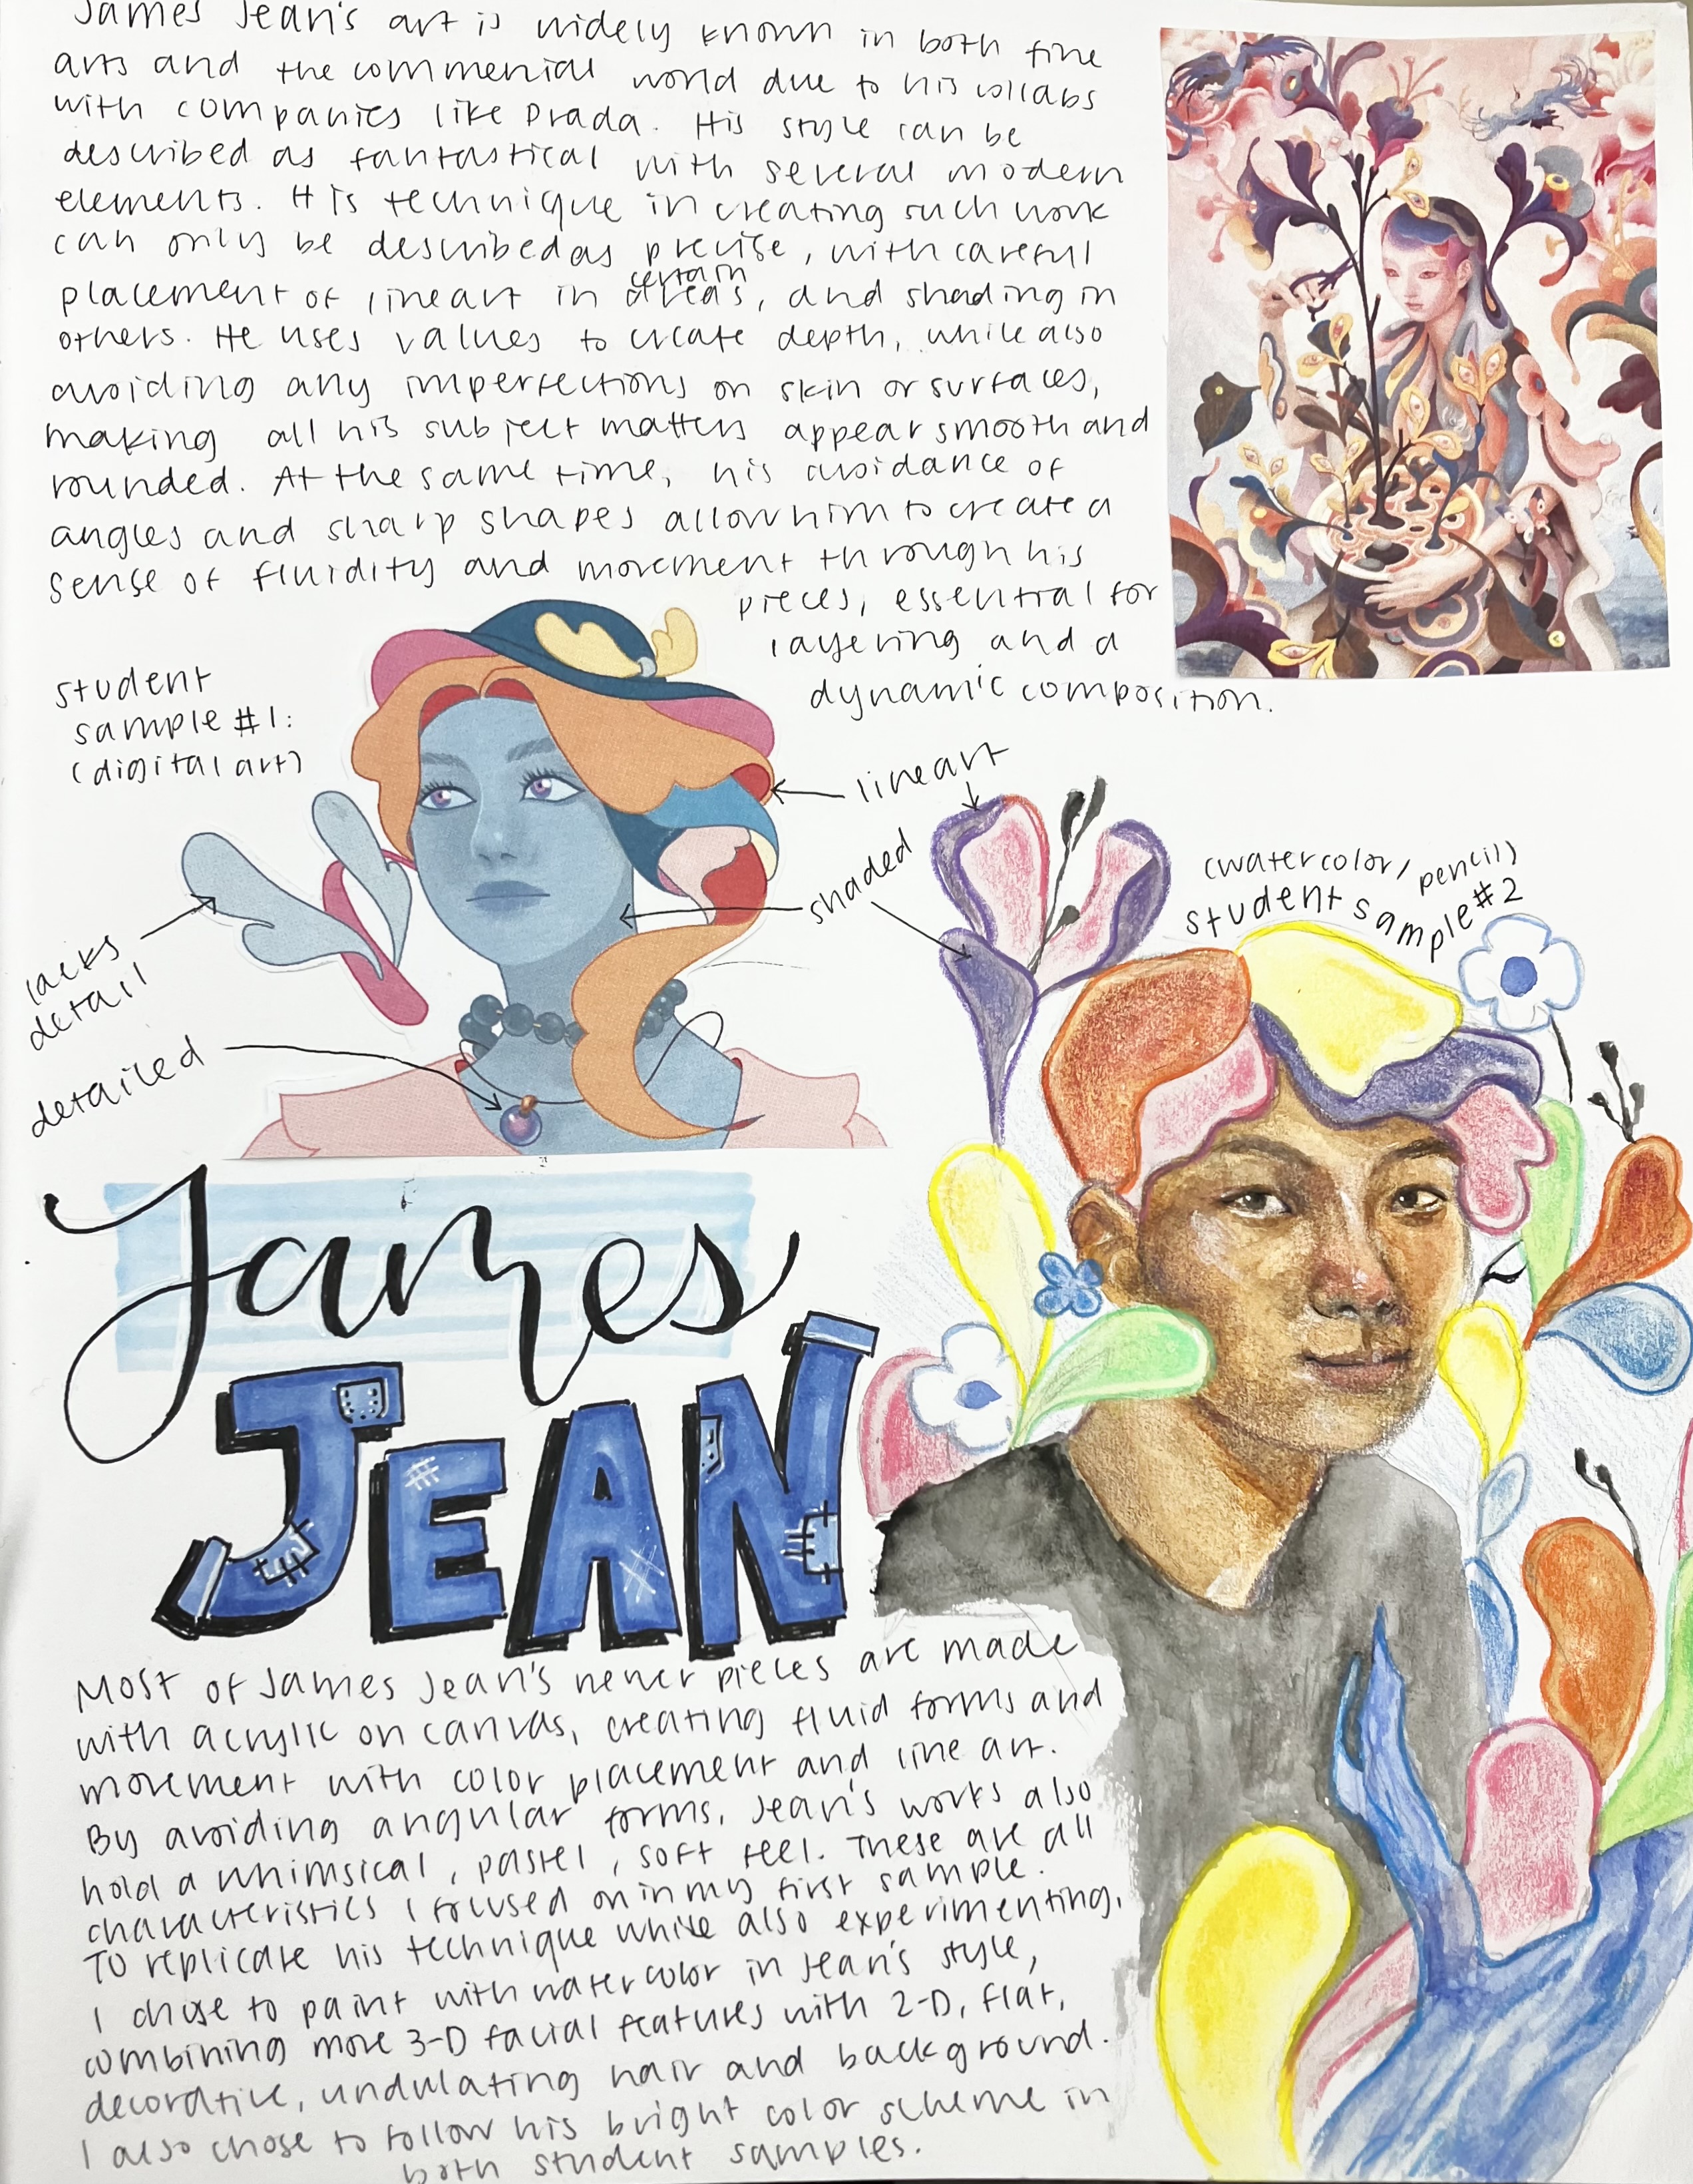 James Jean's art is widely known in both fine
arts and the commercial world due to his collabs
with companies like Prada. His style can be
described as fantastical with several modern
elements. His technique in creating such work
can only be described as precise, with careful
placement of lineart in certain areas, and shading in
others. He uses values to create depth, while also
avoiding any imperfections on skin or surfaces,
making all his subject matters appear smooth and
rounded. At the same time, his avoidance of
angles and sharp shapes allow him to create a
sense of fluidity and movement through his
pieces, essential for
layering and a
dynamic composition.
student
sample #1:
(digital art)
lineart
shaded
lacks
detail
detailed
(watercolor/pencil)
student sample #2
James
JEAN
Most of James Jean's newer pieces are made
with acrylic on canvas, creating fluid forms and
movement with color placement and line art.
By avoiding angular forms, Jean's works also
hold a whimsical, pastel, soft feel. These are all
characteristics I focused on in my first sample.
To replicate his technique while also experimenting,
I chose to paint with watercolor in Jean's style,
combining more 3-D facial features with 2-D, flat,
decorative, undulating hair and background.
I also chose to follow his bright color scheme in
both student samples.